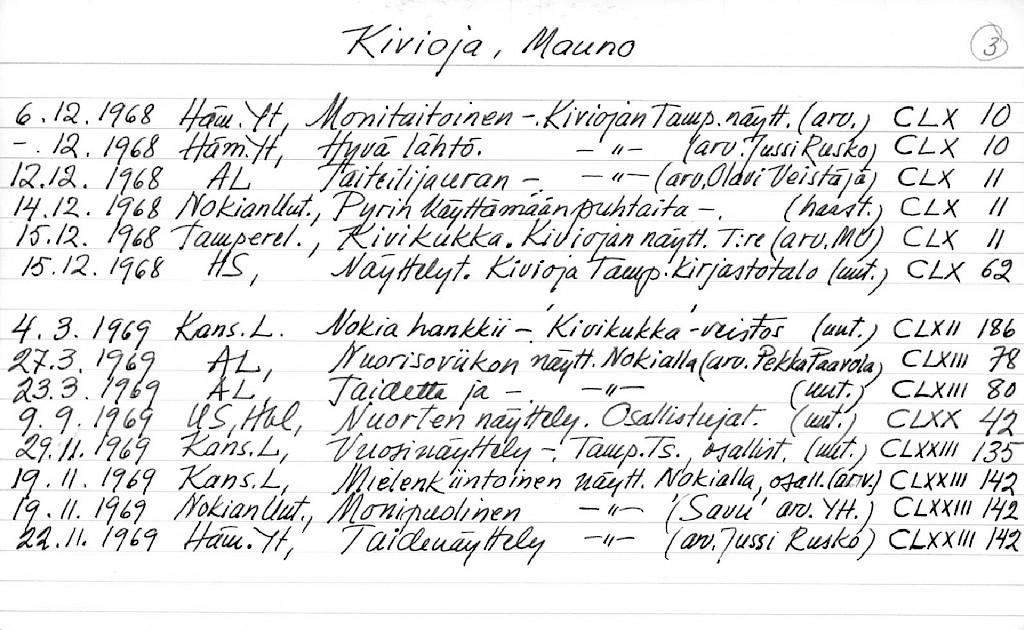 Kivioja, Mauno 3
6.12.1968 Häm.Yt, Monitaitoinen -. Kiviojan Tamp. näytt. (arv.) CLX 10
-.12.1968 Häm.Yt, Hyvä lähtö. -"- (arv. Jussi Rusko) CLX 10
12.12.1968 AL Taiteilijauran -. -"- (arv. Olavi Veistäjä) CLX 11
14.12.1968 NokianUut., Pyrin käyttämään puhtaita -. (haast.) CLX 11
15.12.1968 Tamperel., Kivikukka. Kiviojan näytt. T:re (arv. MU) CLX 11
15.12.1968 HS, Näyttelyt. Kivioja Tamp. Kirjastotalo (uut.) CLX 62
4.3.1969 Kans.L. Nokia hankkii -. 'Kivikukka'-veistos (uut.) CLXII 186
27.3.1969 AL, Nuorisoviikon näytt. Nokialla (arv. Pekka Paavola) CLXIII 78
23.3.1969 AL, Taidetta ja -. -"- (uut.) CLXIII 80
9.9.1969 US, Hbl, Nuorten näyttely. Osallistujat. (uut.) CLXX 42
29.11.1969 Kans.L, Vuosinäyttely -. Tamp.Ts., osallist. (uut.) CLXXIII 135
19.11.1969 Kans.L, Mielenkiintoinen näytt. Nokialla, osall. (arv.) CLXXIII 142
19.11.1969 NokianUut., Monipuolinen -"- ('Savu' arv. YH.) CLXXIII 142
22.11.1969 Häm.Yt, Taidenäyttely -"- (arv. Jussi Rusko) CLXXIII 142